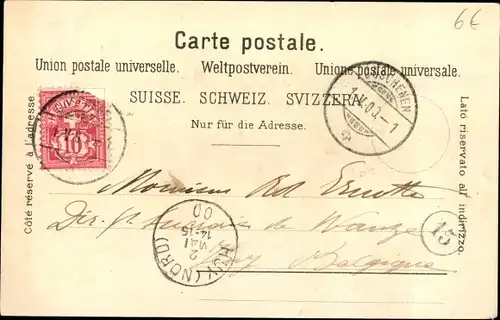 6€
Carte postale.
Union postale universelle. Weltpostverein. Unione postale universale.
SUISSE. SCHWEIZ. SVIZZERA.
Nur für die Adresse.
Côté réservé à l'adresse.
Lato riservato all' indirizzo.
HELVETIA
10
GÖSCHENEN
1.V.00.-1
Monsieur
Dir. de Wanze
Huy Belgique
15
HUY (NORD)
2
MAI
14-15
00